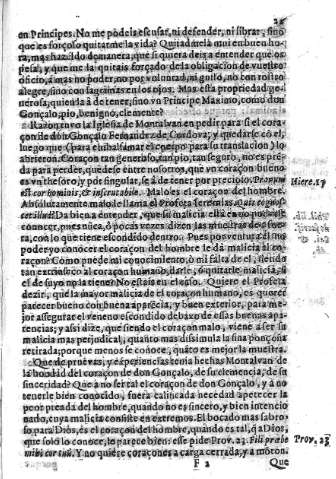 en Principes. No me podeis escusar, ni defender, ni librar, sino
que es forçoso quitarme la vida? Quitadmela muy enbuen ho-
ra, mas hazildo demanera, que si quiera deis a entender que os
pesa, y que me la quitais forçado de la obligacion de vuestro
oficio, a mas no poder, no por voluntad, ni gusto, no con rostro
alegre, sino con lagrimas en los ojos. Mas esta propiedad ge-
nerosa, quien la à de tener, sino vn Principe Maximo, como don
Gonçalo, pio, benigno, clemente?
Razon tuvo la Iglesia de Montalvan en pedir para si el cora-
çon de don Gonçalo Fernandez de Cordova, y quedarse cõ el,
luego que (para enbalsamar el cuerpo para su translacion) lo
abrieron. Coraçon tan generoso, tan pio, tan seguro, no es pré-
da para perder, quedese entre nosotros, que vn coraçon bueno
es vn thesoro, y por singular, se à de tener por precioso. Pravum
est cor hominis, & inscrutabile. Malo es el coraçon del hombre.
Absolutamente malo le llama el Profeta Ieremias. Quis cognos-
cet illud? Da bien a entender, que su malicia està en no poderse
conocer, pues nûca, ò pocas vezes dizen las muestras de afue-
ra, con lo que tiene escondido dentro. Pues por ventura el no
poder yo conocer el coraçon del hombre le da malicia al co-
raçon? Como puede mi conocimiento, ò mi falta de el, siendo
tan extrinseco al coraçon humano, darle, ò quitarle malicia, si
el de suyo no la tiene? No está is en el caso. Quiere el Profeta
dezir, que la mayor malicia de el coraçon humano, es querer
parecer bueno con buena aparécia, y buen exterior, para me-
jor assegurar el veneno escondido debaxo de essas buenas apa-
rencias; y assi dize, que siendo el coraçon malo, viene a ser su
malicia mas perjudicial, quanto mas dissimula la sina ponçoña
retirada; porque menos se conoce, quãto es mejor la muestra.
Que de pruevas, y experiencias tenia hechas Montalvan de
la bondad del coraçon de don Gonçalo, de su clemencia, de su
sinceridad? Que a no ser tal el coraçon de don Gonçalo, y a no
tenerle bien conocido, fuera calificada necedad apetecer la
peor prenda del hombre, quando no es sincero, y bien intencio
nado, cuya malicia consiste en extremos. El bocado mas sabro-
so para Dios, es el coraçon del hombre, quando es tal, q̃ a Dios,
que solo lo conoce, lo parece bien: esse pide Prov. 23. Fili præbe
mihi cor tuũ. Y no quiere coraçones a carga cerrada, y a monton.
F 2 Que
Hiere. 17
Prov. 23